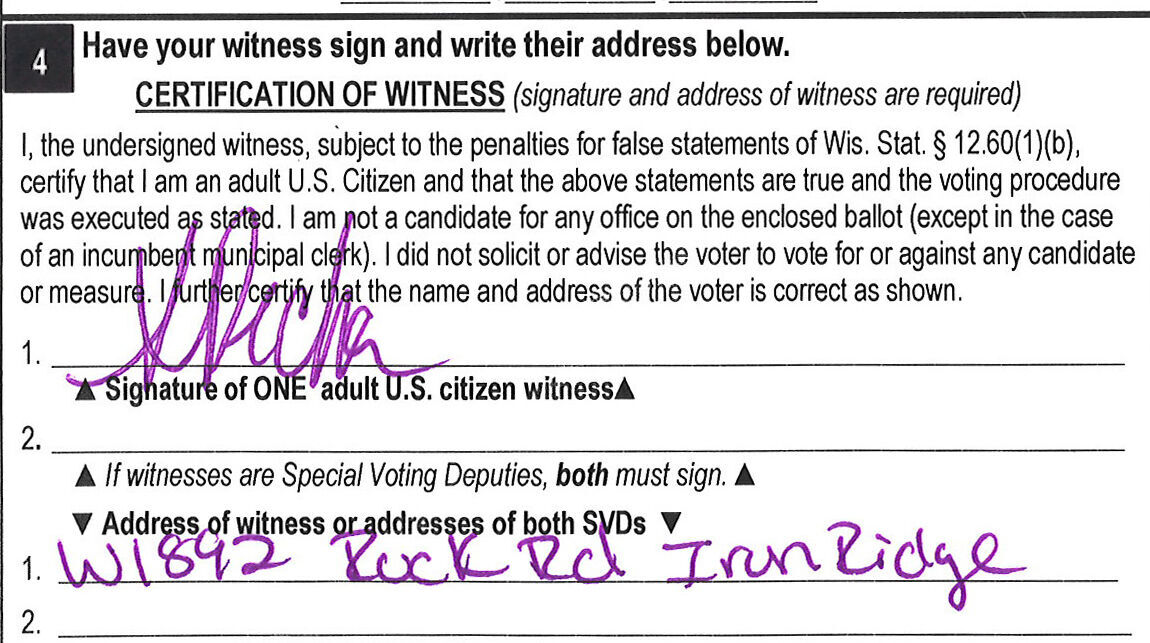 4 Have your witness sign and write their address below.
CERTIFICATION OF WITNESS (signature and address of witness are required)
I, the undersigned witness, subject to the penalties for false statements of Wis. Stat. § 12.60(1)(b),
certify that I am an adult U.S. Citizen and that the above statements are true and the voting procedure
was executed as stated. I am not a candidate for any office on the enclosed ballot (except in the case
of an incumbent municipal clerk). I did not solicit or advise the voter to vote for or against any candidate
or measure. I further certify that the name and address of the voter is correct as shown.
1.
▲ Signature of ONE adult U.S. citizen witness▲
2.
▲ If witnesses are Special Voting Deputies, both must sign. ▲
▼ Address of witness or addresses of both SVDs ▼
1. W1892 Rock Rd Iron Ridge
2.